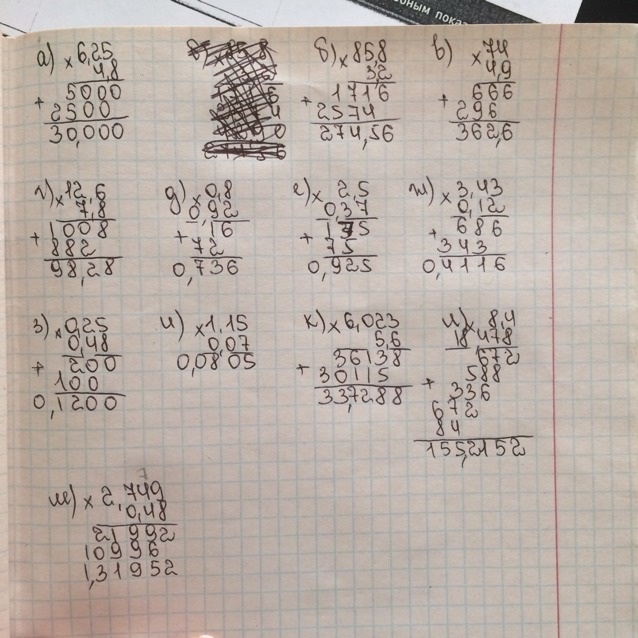 бным показ
а) × 6,25
4,8
5000
+ 2500
30,000
б) × 85,8
3,2
1716
+ 2574
274,56
в) × 74
4,9
666
+ 296
362,6
г) × 12,6
7,8
1008
+ 882
98,28
д) × 0,8
0,92
16
+ 72
0,736
е) × 2,5
0,37
175
+ 75
0,925
ж) × 3,43
0,12
686
+ 343
0,4116
з) × 0,25
0,48
200
+ 100
0,1200
и) × 1,15
0,07
0,0805
к) × 6,023
5,6
36138
+ 30115
33,7288
л) × 8,4
18,478
672
588
+ 336
672
84
155,2152
м) × 2,749
0,48
21992
10996
1,31952